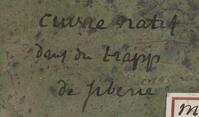 cuivre natif
dans du trapp
de siberie
m